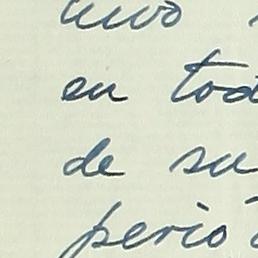 en tod
de su
perió